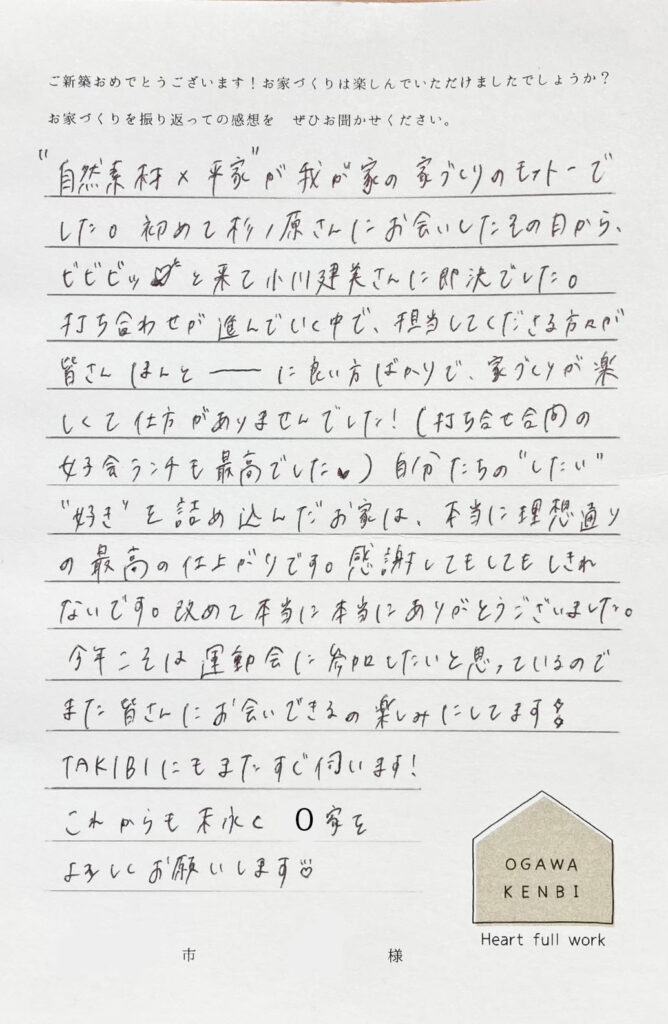 ご新築おめでとうございます！お家づくりは楽しんでいただけましたでしょうか？
お家づくりを振り返っての感想を　ぜひお聞かせください。
"自然素材×平家"が我が家の家づくりのモットーで
した。初めて杉ノ原さんにお会いしたその日から、
ビビビッ♡と来て小川建美さんに即決でした。
打ち合わせが進んでいく中で、担当してくださる方々が
皆さんほんと――に良い方ばかりで、家づくりが楽
しくて仕方がありませんでした！（打ち合せ合間の
女子会ランチも最高でした♥）自分たちの"したい"
"好き"を詰め込んだお家は、本当に理想通り
の最高の仕上がりです。感謝してもしてもしきれ
ないです。改めて本当に本当にありがとうございました。
今年こそは運動会に参加したいと思っているので
また皆さんにお会いできるの楽しみにしてます
TAKIBIにもまたすぐ伺います！
これからも末永くO家を
よろしくお願いします♡
OGAWA
KENBI
Heart full work
市　様